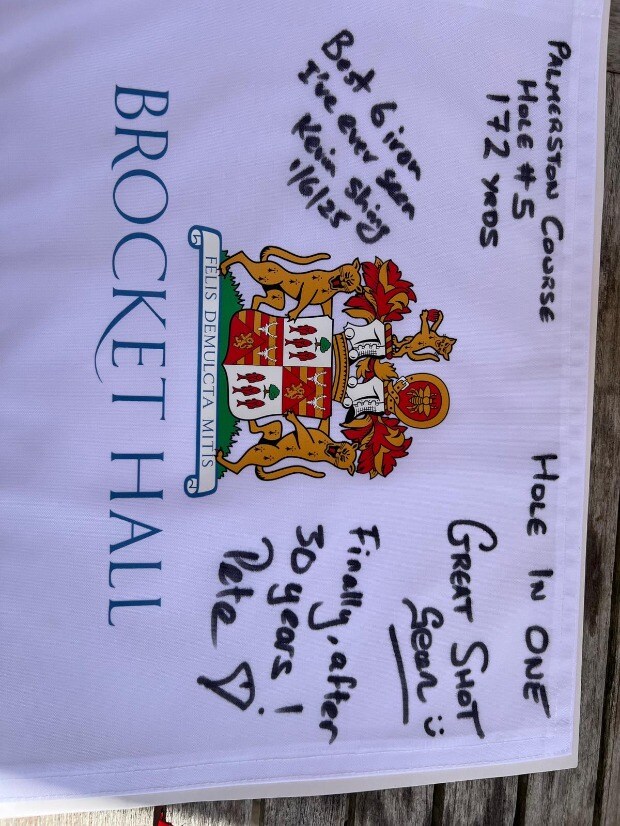 PALMERSTON COURSE
HOLE #5
172 YRDS
HOLE IN ONE
GREAT SHOT
Sean
Best 6 iron
I've ever seen
Kevin
1/6/25
Finally, after
30 years!
Pete
FELIS DEMULCTA MITIS
BROCKET HALL